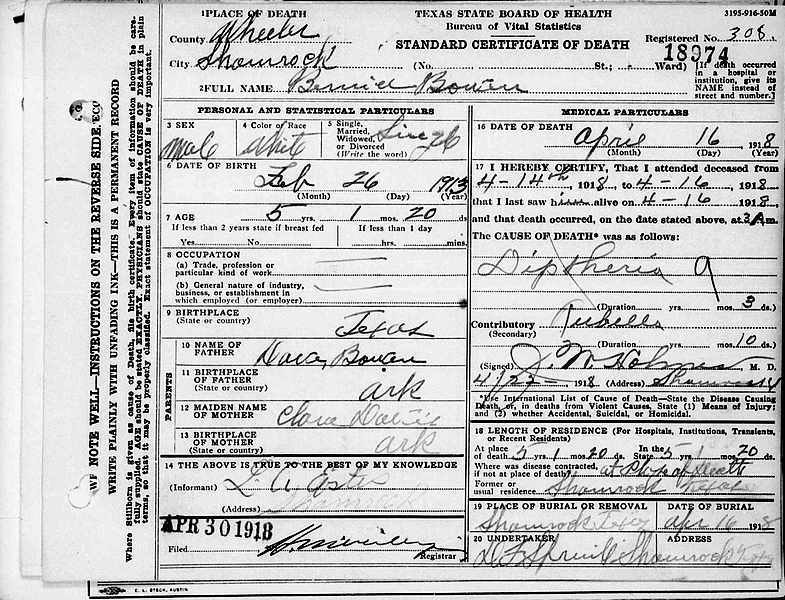 WE NOTE WELL—INSTRUCTIONS ON THE REVERSE SIDE,
WRITE PLAINLY WITH UNFADING INK—THIS IS A PERMANENT RECORD
Where Stillborn is given as cause of Death, file birth certificate. Every item of information should be care-
fully supplied. AGE should be stated EXACTLY. PHYSICIANS should state CAUSE OF DEATH in plain
terms, so that it may be properly classified. Exact statement of OCCUPATION is very important.
1 PLACE OF DEATH
TEXAS STATE BOARD OF HEALTH
3195-916-50M
County Wheeler
Bureau of Vital Statistics
Registered No. 308
STANDARD CERTIFICATE OF DEATH
18974
City Shamrock (No. St.; Ward)
[If death occurred in a hospital or institution, give its NAME instead of street and number.]
2 FULL NAME Bernice Bowen
PERSONAL AND STATISTICAL PARTICULARS
3 SEX Male
4 Color of Race White
5 Single, Married, Widowed, or Divorced (Write the word) Single
6 DATE OF BIRTH
Feb 26 1913
(Month) (Day) (Year)
7 AGE 5 yrs. 1 mos. 20 ds
If less than 2 years state if breast fed
If less than 1 day
Yes No. hrs. mins.
8 OCCUPATION
(a) Trade, profession or particular kind of work
(b) General nature of industry, business, or establishment in which employed (or employer)
9 BIRTHPLACE
(State or country) Texas
PARENTS
10 NAME OF FATHER Bowen
11 BIRTHPLACE OF FATHER
(State or country) ark
12 MAIDEN NAME OF MOTHER Clara
13 BIRTHPLACE OF MOTHER
(State or country) ark
14 THE ABOVE IS TRUE TO THE BEST OF MY KNOWLEDGE
(Informant)
(Address)
APR 30 1918
Filed
Registrar
MEDICAL PARTICULARS
16 DATE OF DEATH
April 16, 1918
(Month) (Day) (Year)
17 I HEREBY CERTIFY, That I attended deceased from
4-14th 1918, to 4-16, 1918
that I last saw him alive on 4-16 1918
and that death occurred, on the date stated above, at 3 A.m.
The CAUSE OF DEATH* was as follows:
Diptheria 9
(Duration yrs. mos. 3 ds.)
Contributory Rubella
(Secondary)
(Duration yrs. mos. 10 ds.
(Signed) J. W. Holmes M. D.
4/23- 1918 (Address) Shamrock
*Use International List of Cause of Death—State the Disease Causing Death, or, in deaths from Violent Causes, State (1) Means of Injury; and (2) whether Accidental, Suicidal, or Homicidal.
18 LENGTH OF RESIDENCE (For Hospitals, Institutions, Transients, or Recent Residents)
At place of death 5 1 20 ds. In the State 5 1 20
Where was disease contracted, if not at place of death? at Place of Death
Former or usual residence Shamrock Texas
19 PLACE OF BURIAL OR REMOVAL
DATE OF BURIAL
Shamrock Texas Apr 16 1918
20 UNDERTAKER
ADDRESS
Shamrock
E. L. STECK, AUSTIN